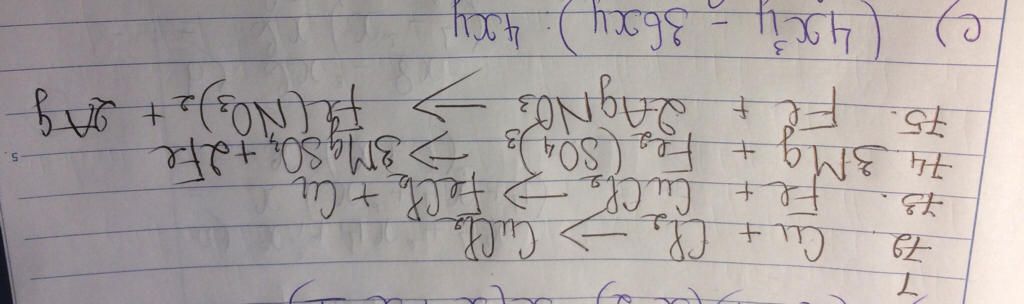 72 Cu + Cl₂ → CuCl₂
73. Fe + CuCl₂ → FeCl₂ + Cu
74. 3Mg + Fe₂(SO₄)₃ → 3MgSO₄ + 2Fe
75. Fe + 2AgNO₃ → Fe(NO₃)₂ + 2Ag
c) (4x³y - 36xy) · 4xy